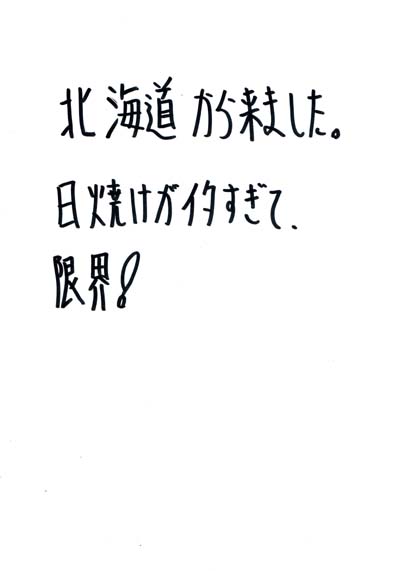 北海道から来ました。
日焼けがイタすぎて、
限界!